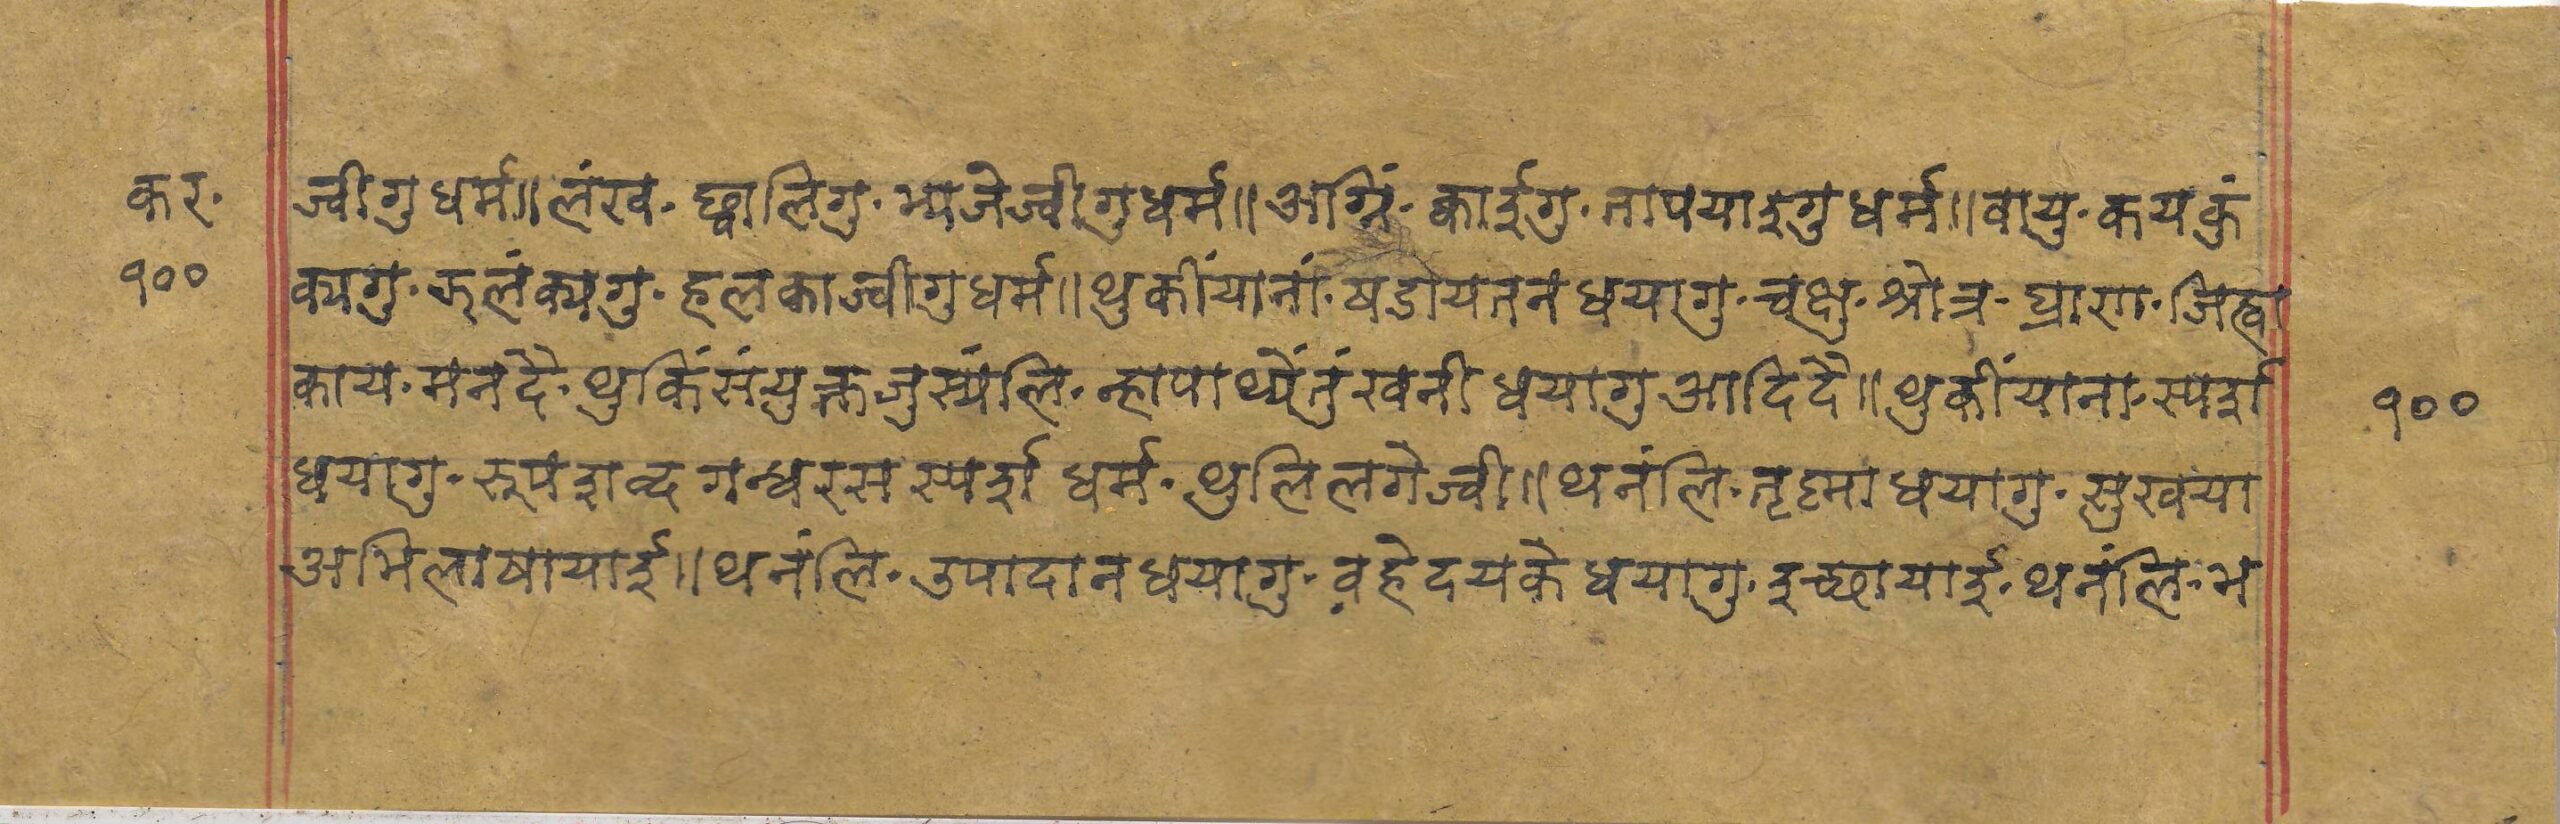 कर. ज्वीगु धर्म॥ लंखव. छ्वालिगु. भ्याजेज्वीगु धर्म॥ अग्निं. क्वाईगु. तापयाइगु धर्म॥ वायु. कयकुं
१०० क्यगु. फलंक्यगु. हलकाज्वीगु धर्म॥ थुकींयानां. षडायतन धयागु. चक्षु. श्रोत्र. घ्राण. जिह्वा
काय. मन दै. थुकिं संयुक्त जुस्यंलि. न्हापाथ्येंतुं खनी धयागु आदि दै॥ थुकींयाना. स्पर्श १००
धयागु. रूप शब्द गन्ध रस स्पर्श धर्म. थुलि लगेज्वी॥ थनंलि. तृष्णा धयागु. सुखया
अभिलाषायाई॥ थनंलि. उपादान धयागु. व हे दयके धयागु. इच्छायाई. थनंलि. भ